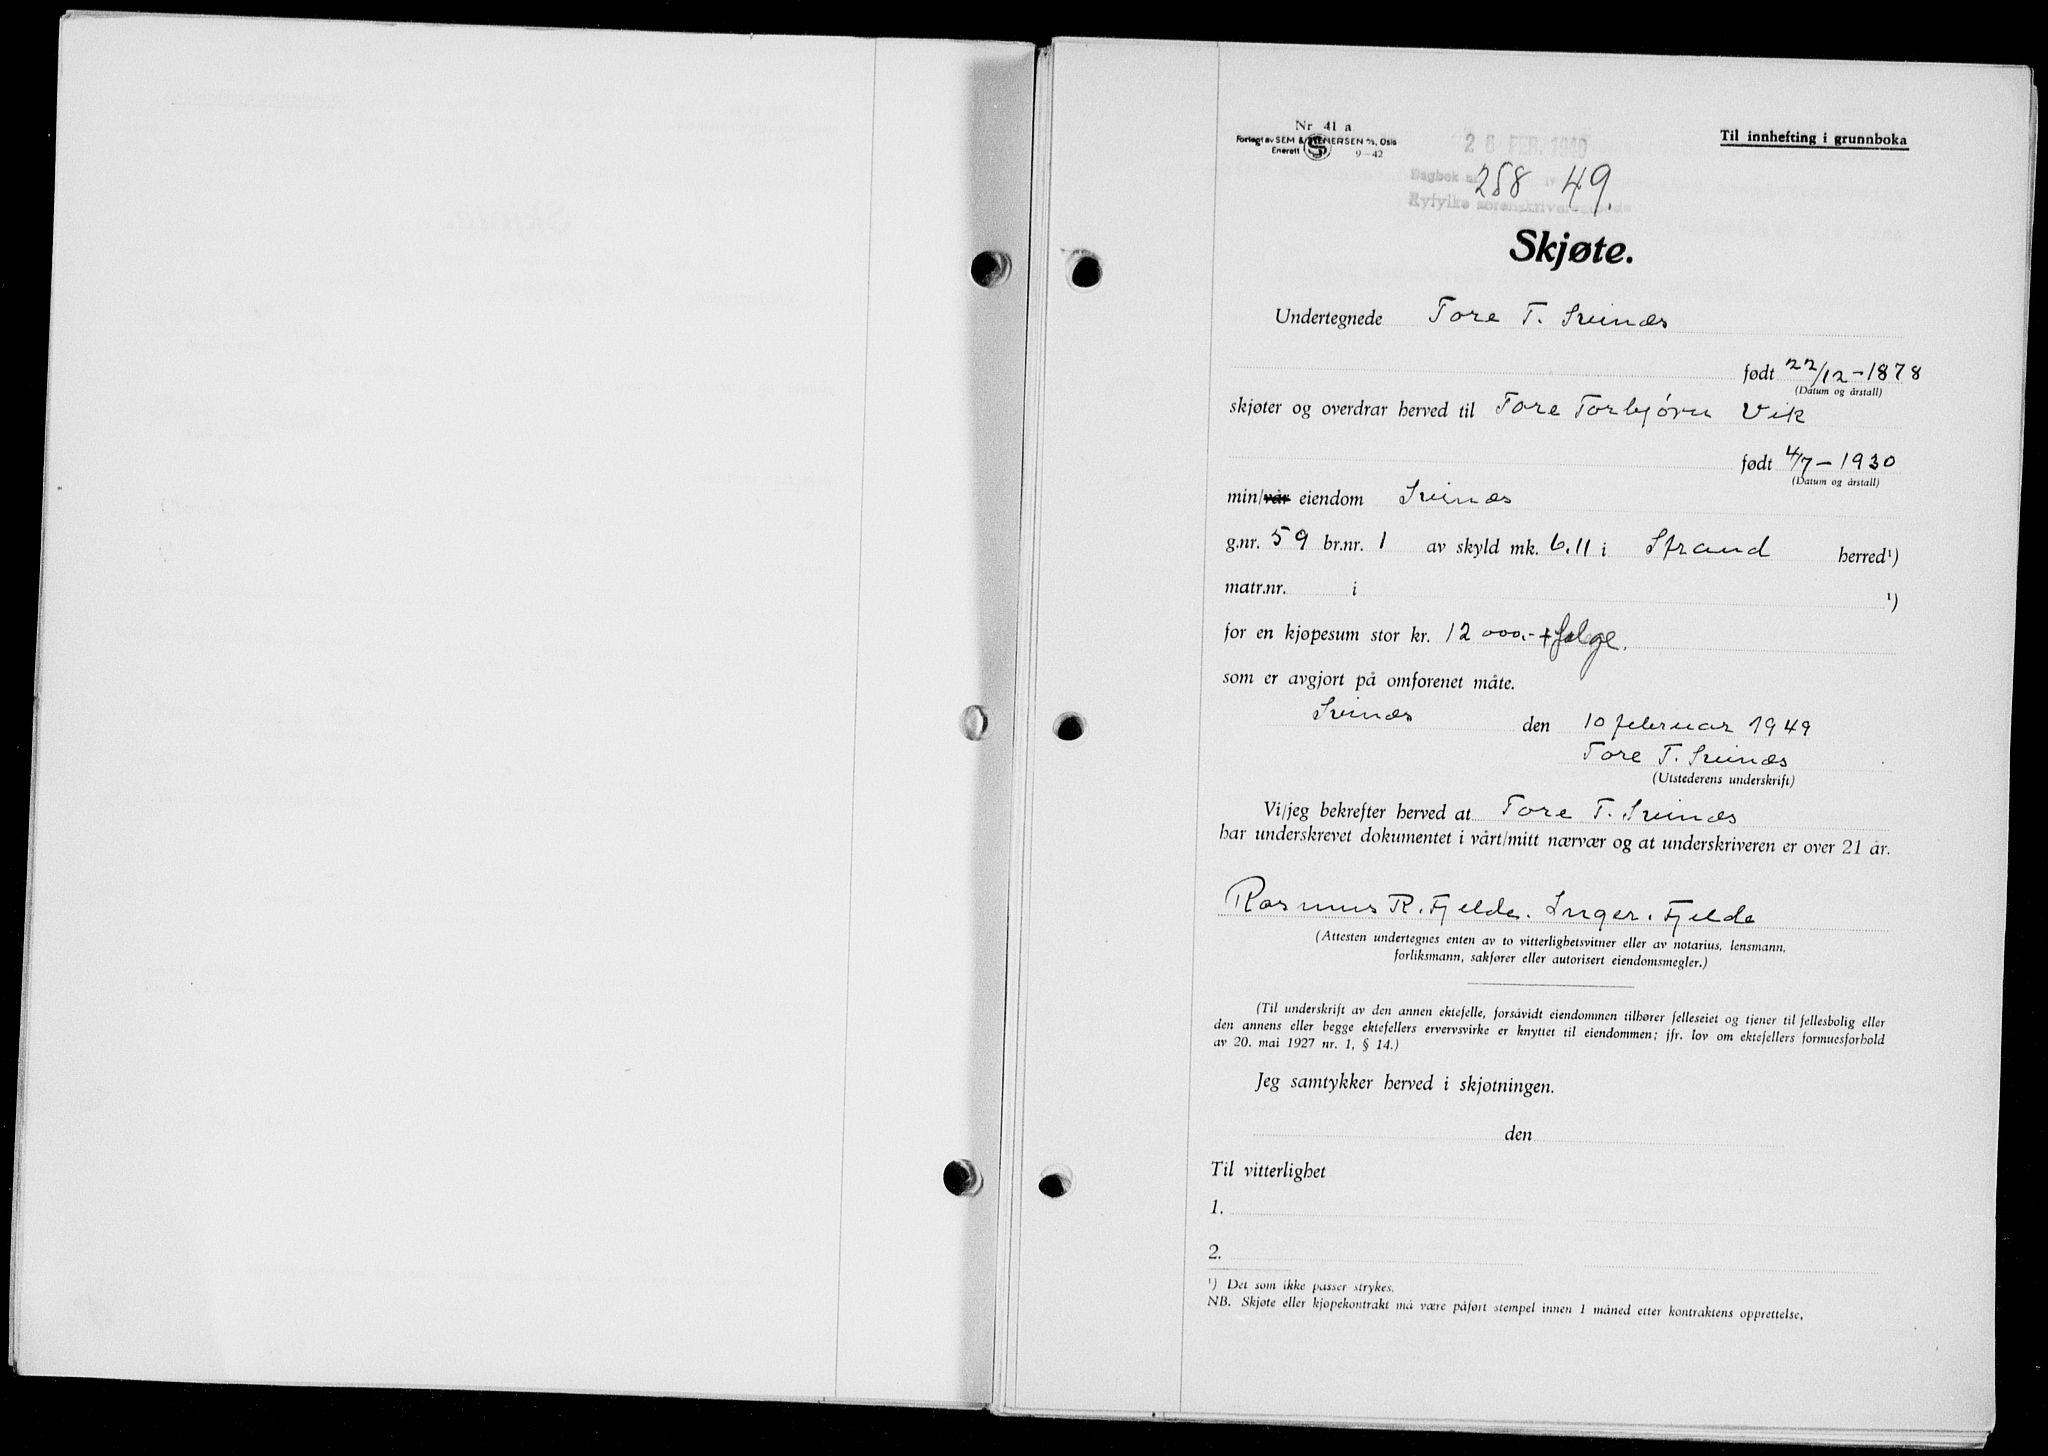 Nr. 41 a
Til innhefting i grunnboka
Forlagt av SEM & STENERSEN A/S, Oslo
Enerett 9—42
26 FEB. 1949
Dagbok nr. 258 49.
Ryfylke sorenskriverembede
Skjøte.
Undertegnede Tore T. Svinæs
født 22/12-1878
(Datum og årstall)
skjøter og overdrar herved til Tore Torbjørn Vik
født 4/7-1930
(Datum og årstall)
min/vår eiendom Svinæs
g.nr. 59 br.nr. 1 av skyld mk. 6.11 i Strand herred¹)
matr.nr. i ¹)
for en kjøpesum stor kr. 12 000,- + følge.
som er avgjort på omforenet måte.
Svinæs den 10 februar 1949
Tore T. Svinæs
(Utstederens underskrift)
Vi/jeg bekrefter herved at Tore T. Svinæs
har underskrevet dokumentet i vårt/mitt nærvær og at underskriveren er over 21 år.
Rasmus R. Fjelde. Inger. Fjelde
(Attesten undertegnes enten av to vitterlighetsvitner eller av notarius, lensmann,
forliksmann, sakfører eller autorisert eiendomsmegler.)
(Til underskrift av den annen ektefelle, forsåvidt eiendommen tilhører felleseiet og tjener til fellesbolig eller
den annens eller begge ektefellers ervervsvirke er knyttet til eiendommen; jfr. lov om ektefellers formuesforhold
av 20. mai 1927 nr. 1, § 14.)
Jeg samtykker herved i skjøtningen.
den
Til vitterlighet
1.
2.
¹) Det som ikke passer strykes.
NB. Skjøte eller kjøpekontrakt må være påført stempel innen 1 måned etter kontraktens opprettelse.